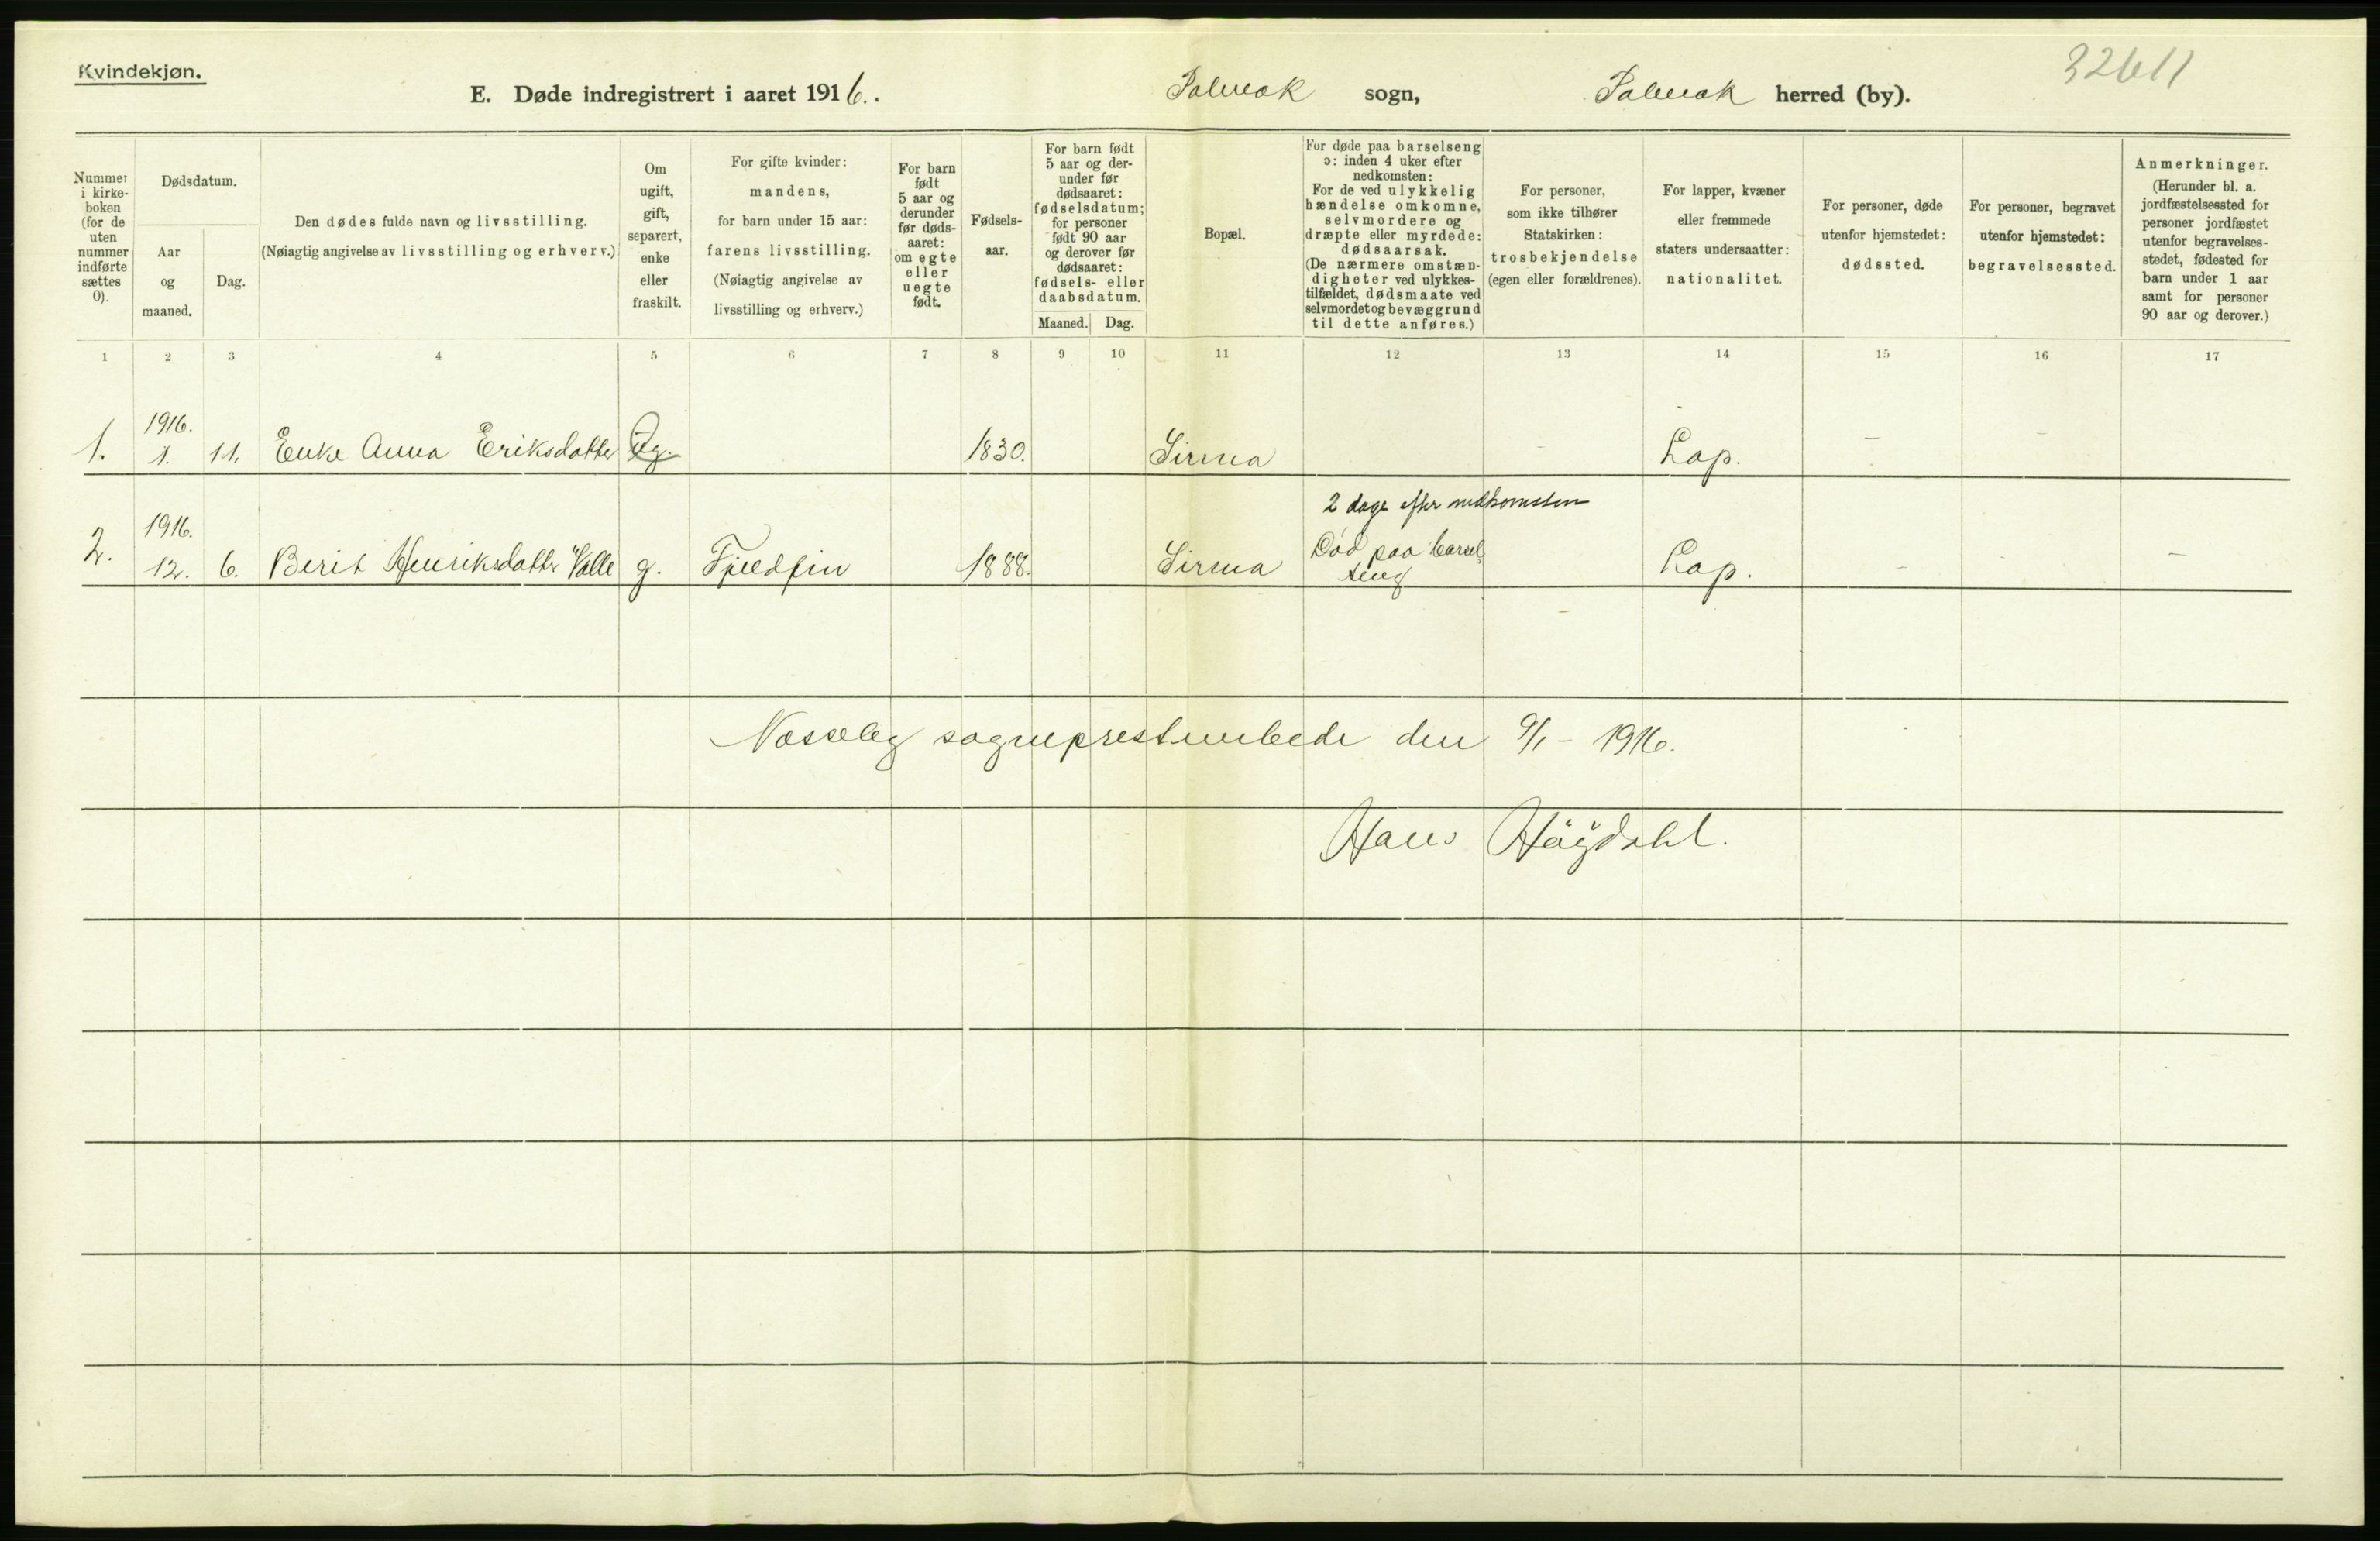 Kvindekjøn.
32611
E. Døde indregistrert i aaret 1916. Polmak sogn, Polmak herred (by).
Nummer i kirke-boken (for de uten nummer indførte sættes 0).
Dødsdatum.
Aar og maaned.
Dag.
Den dødes fulde navn og livsstilling.
(Nøiagtig angivelse av livsstilling og erhverv.)
Om ugift, gift, separert, enke eller fraskilt.
For gifte kvinder: mandens, for barn under 15 aar: farens livsstilling. (Nøiagtig angivelse av livsstilling og erhverv.)
For barn født 5 aar og derunder før døds-aaret: om egte eller uegte født.
Fødsels-aar.
For barn født 5 aar og der-under før dødsaaret: fødselsdatum; for personer født 90 aar og derover før dødsaaret: fødsels- eller daabsdatum.
Maaned. Dag.
Bopæl.
For døde paa barselseng ɔ: inden 4 uker efter nedkomsten: For de ved ulykkelig hændelse omkomne, selvmordere og dræpte eller myrdede: dødsaarsak. (De nærmere omstæn-digheter ved ulykkes-tilfældet, dødsmaate ved selvmordet og bevæggrund til dette anføres.)
For personer, som ikke tilhører Statskirken: trosbekjendelse (egen eller forældrenes).
For lapper, kvæner eller fremmede staters undersaatter: nationalitet.
For personer, døde utenfor hjemstedet: dødssted.
For personer, begravet utenfor hjemstedet: begravelsessted.
Anmerkninger. (Herunder bl. a. jordfæstelsessted for personer jordfæstet utenfor begravelses-stedet, fødested for barn under 1 aar samt for personer 90 aar og derover.)
1 2 3 4 5 6 7 8 9 10 11 12 13 14 15 16 17
1. 1916. 1. 11. Enke Anna Eriksdatter 1830. Sirma - Lap. - -
2 dage efter nedkomsten
2. 1916. 12. 6. Berit Henriksdatter Valle g. Fjeldfin 1888. Sirma Död paa barsel seng Lap. - -
Nesseby sogneprestembede den 9/1 - 1916.
Hans Höydahl.